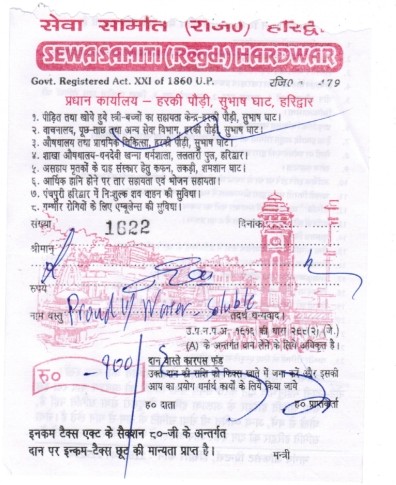 सेवा समिति (राज०) हरिद्वार
SEWA SAMITI (Regd.) HARDWAR
Govt. Registered Act. XXI of 1860 U.P. रजि०
प्रधान कार्यालय – हरकी पौड़ी, सुभाष घाट, हरिद्वार
१. पीड़ित तथा खोये हुये स्त्री-बच्चों का सहायता केन्द्र-हरकी पौड़ी, सुभाष घाट।
२. वाचनालय, पूछ-ताछ तथा अन्य सेवा विभाग, हरकी पौड़ी, सुभाष घाट।
३. औषधालय तथा प्राथमिक चिकित्सा, हरकी पौड़ी, सुभाष घाट।
४. शाखा औषधालय-वनदेवी खन्ना धर्मशाला, ललतारा पुल, हरिद्वार।
५. असहाय मृतकों के दाह संस्कार हेतु कफन, लकड़ी, शमशान घाट।
६. आर्थिक हानि होने पर तार सहायता एवं भोजन सहायता।
७. पंचपुरी हरिद्वार में निःशुल्क शव वाहन की सुविधा।
८. गम्भीर रोगियों के लिए एम्बुलेन्स की सुविधा।
संख्या 1622 दिनांक
श्रीमान्
रुपये
नाम वस्तु Water Soluble तदर्थ धन्यवाद।
(A) के अन्तर्गत दान लेने के लिए अधिकृत है।
रु० 100
दान वास्ते कारपस फंड
उक्त दान की राशि को फिक्स खाते में जमा करें और इसकी
आय का प्रयोग धर्मार्थ कार्यों के लिये किया जाये
ह० दाता ह० प्राप्तकर्ता
इनकम टैक्स एक्ट के सैक्शन ८०-जी के अन्तर्गत
दान पर इन्कम-टैक्स छूट की मान्यता प्राप्त है। मन्त्री